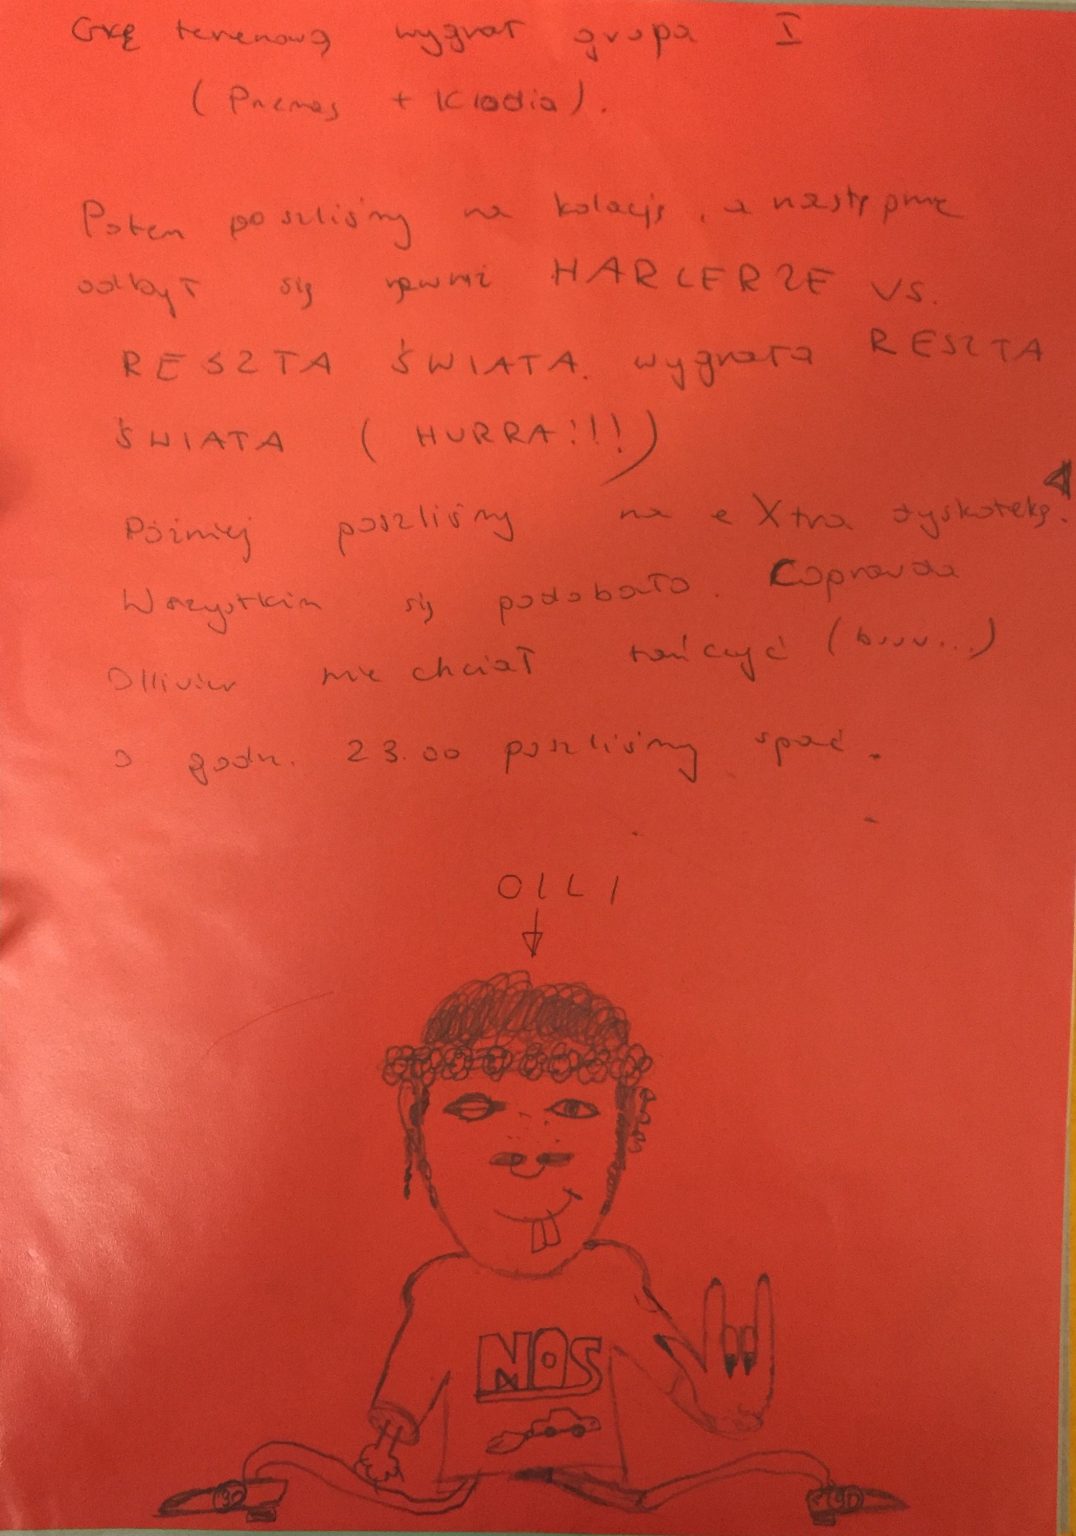 Grę terenową wygrał grupa I
(Przemas + Klodia).
Potem poszliśmy na kolację, a następnie
odbył się HARCERZE VS.
RESZTA ŚWIATA. wygrała RESZTA
ŚWIATA (HURRA!!!)
Później poszliśmy na eXtra dyskotekę.
Wszystkim się podobało. Coprawda
Ollivier nie chciał tańczyć (buuu...)
o godz. 23.00 poszliśmy spać.
OLLI
NOS